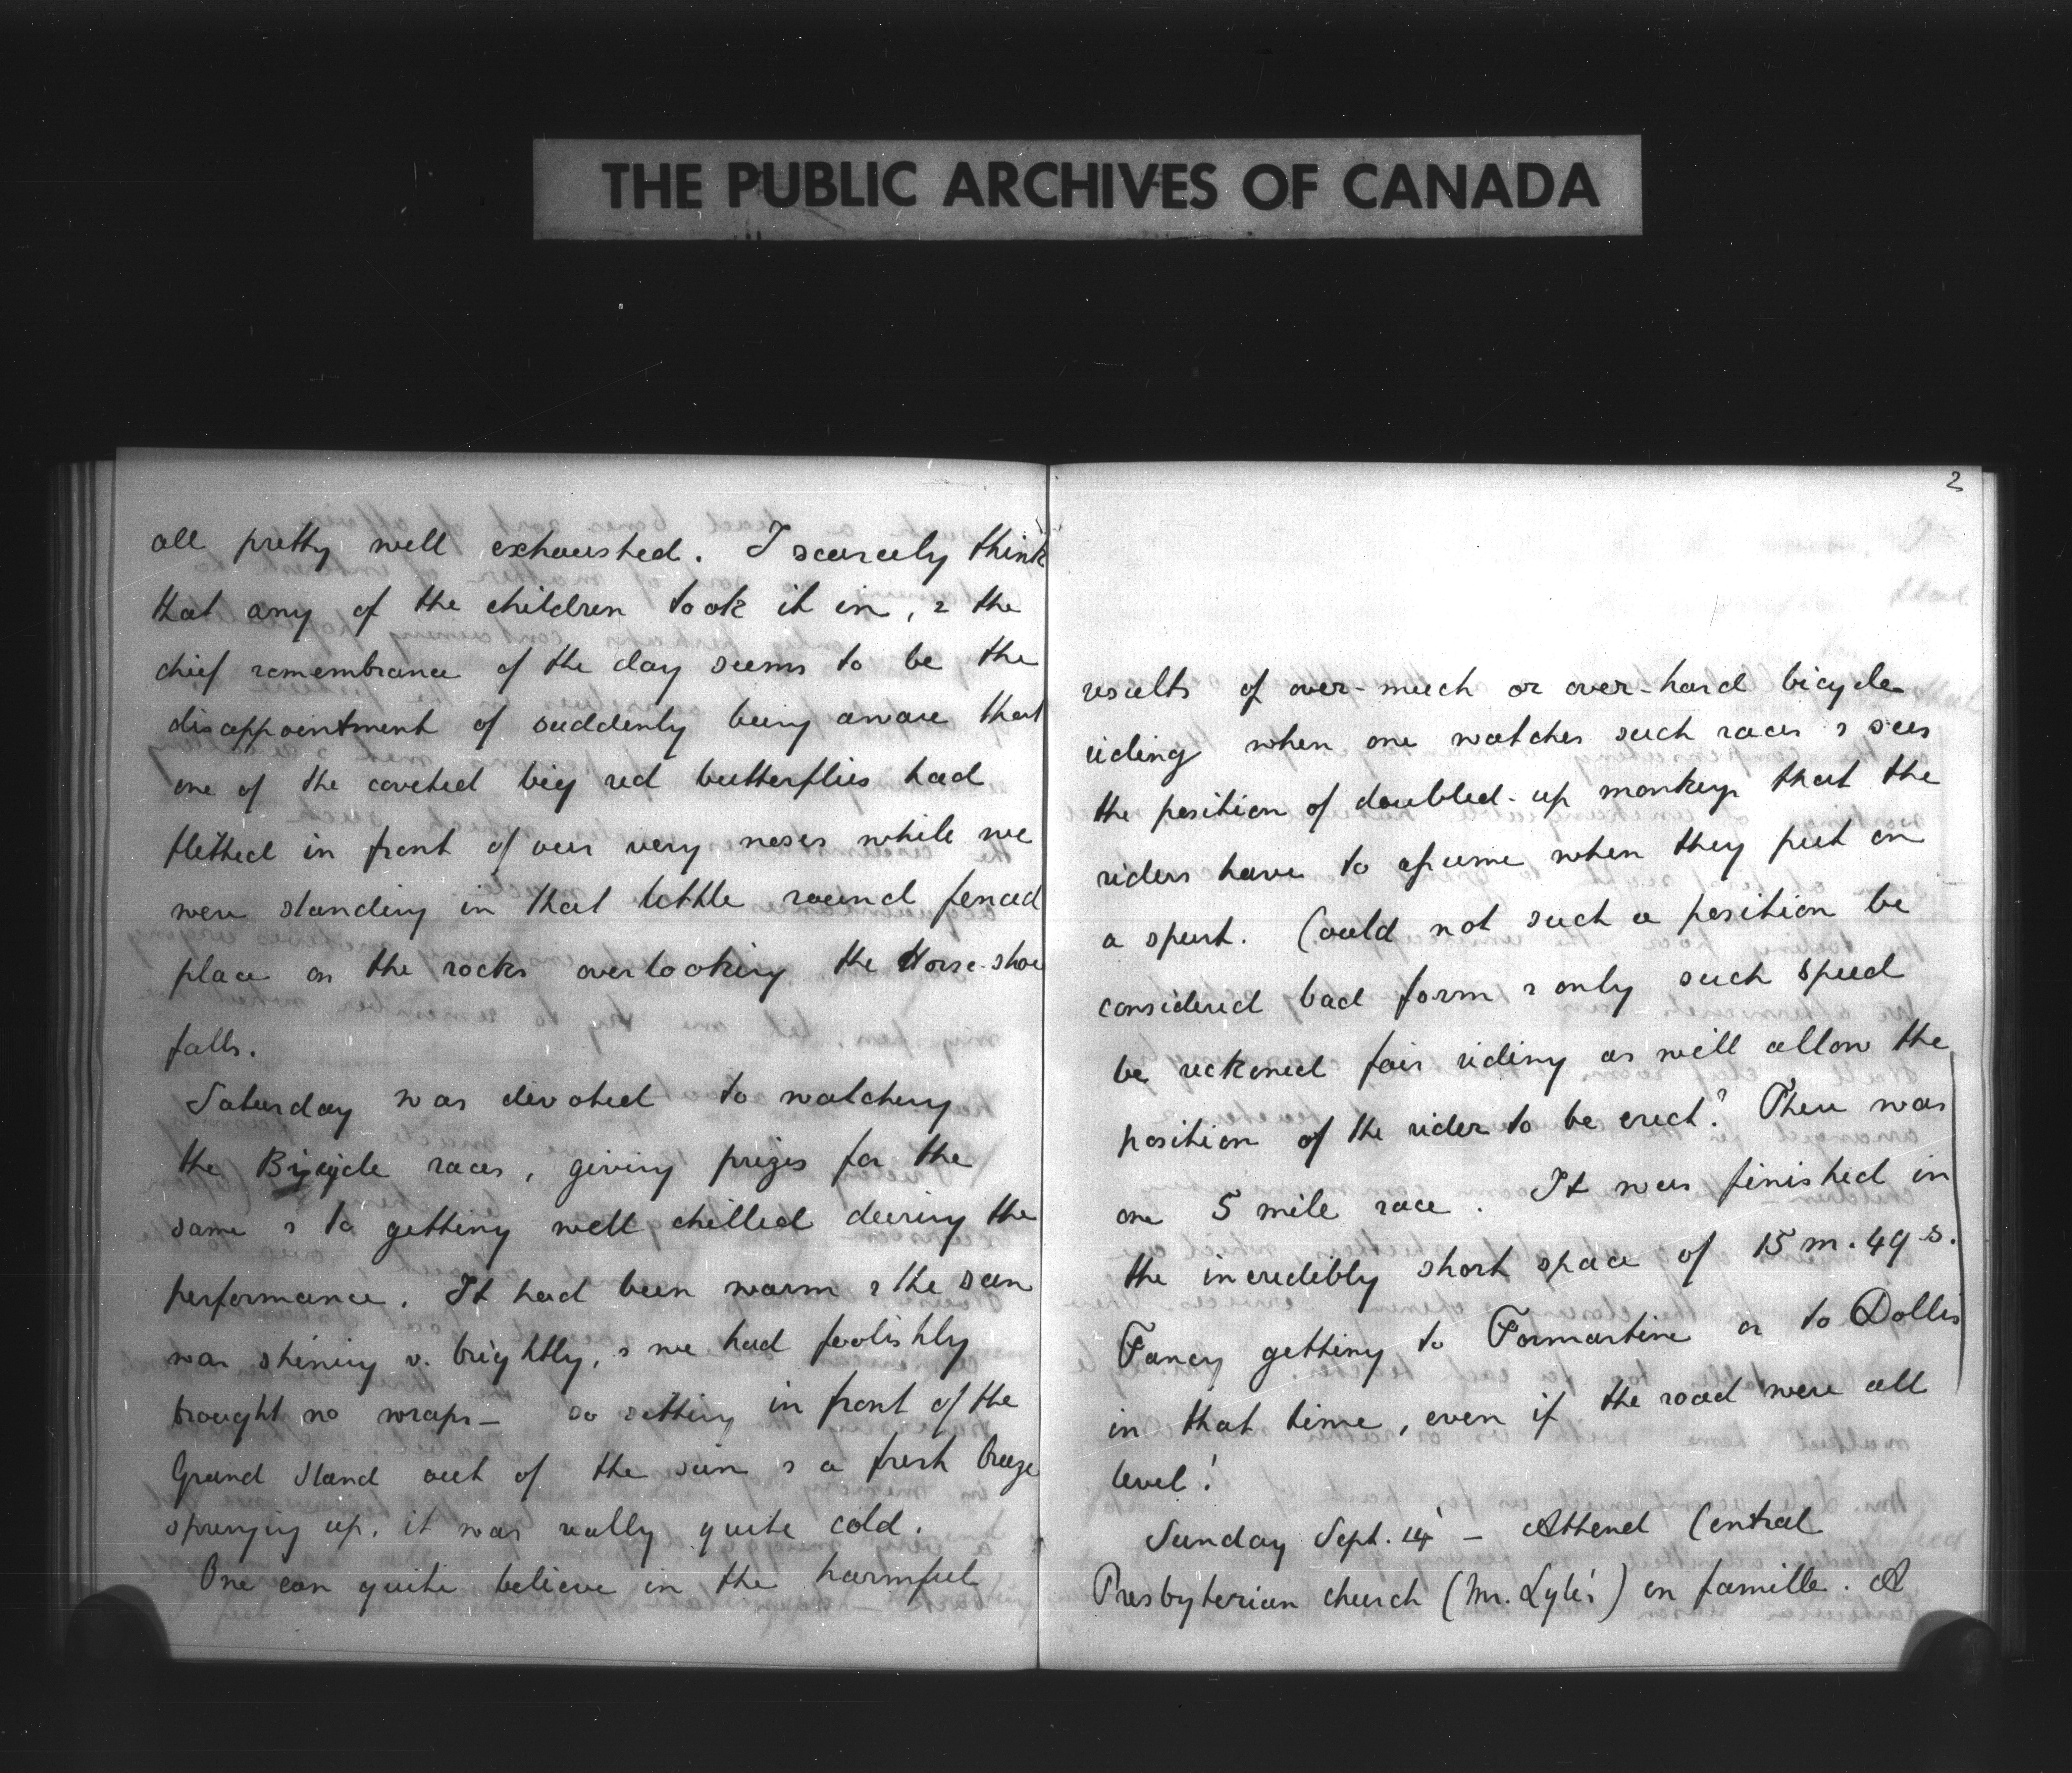 THE PUBLIC ARCHIVES OF CANADA
all pretty well exhausted. I scarcely think
that any of the children took it in, & the
chief remembrance of the day seems to be the
disappointment of suddenly being aware that
one of the coveted big red butterflies had
flitted in front of our very noses while we
were standing in that little round fenced
place on the rocks overlooking the Horse-shoe
falls.
Saturday was devoted to watching
the Bicycle races, giving prizes for the
same & to getting well chilled during the
performance. It had been warm & the sun
was shining v. brightly, & we had foolishly
brought no wraps - so sitting in front of the
Grand Stand out of the sun & a fresh breeze
springing up, it was really quite cold.
One can quite believe in the harmful
2
results of over-much or over-hard bicycle
riding when one watches such races & sees
the position of doubled-up monkeys that the
riders have to assume when they put on
a spurt. Could not such a position be
considered bad form & only such speed
be reckoned fair riding as will allow the
position of the rider to be erect? There was
one 5 mile race. It was finished in
the incredibly short space of 15 m. 49 s.
Fancy getting to Formartine or to Dollis
in that time, even if the road were all
level!
Sunday Sept. 14 - Attend Central
Presbyterian church (Mr. Lyle's) en famille. A